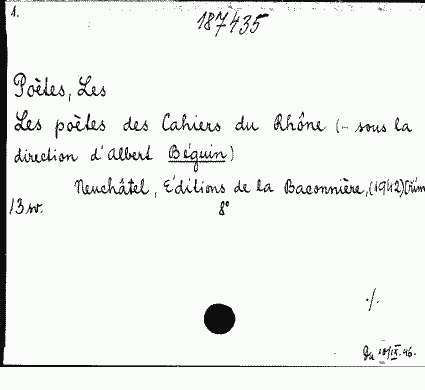 1.
187435
Poètes, Les
Les poètes des Cahiers du Rhône (- sous la
direction d'Albert Béguin)
Neuchâtel, Éditions de la Baconnière, (1942)
13 sv. 8°
./.